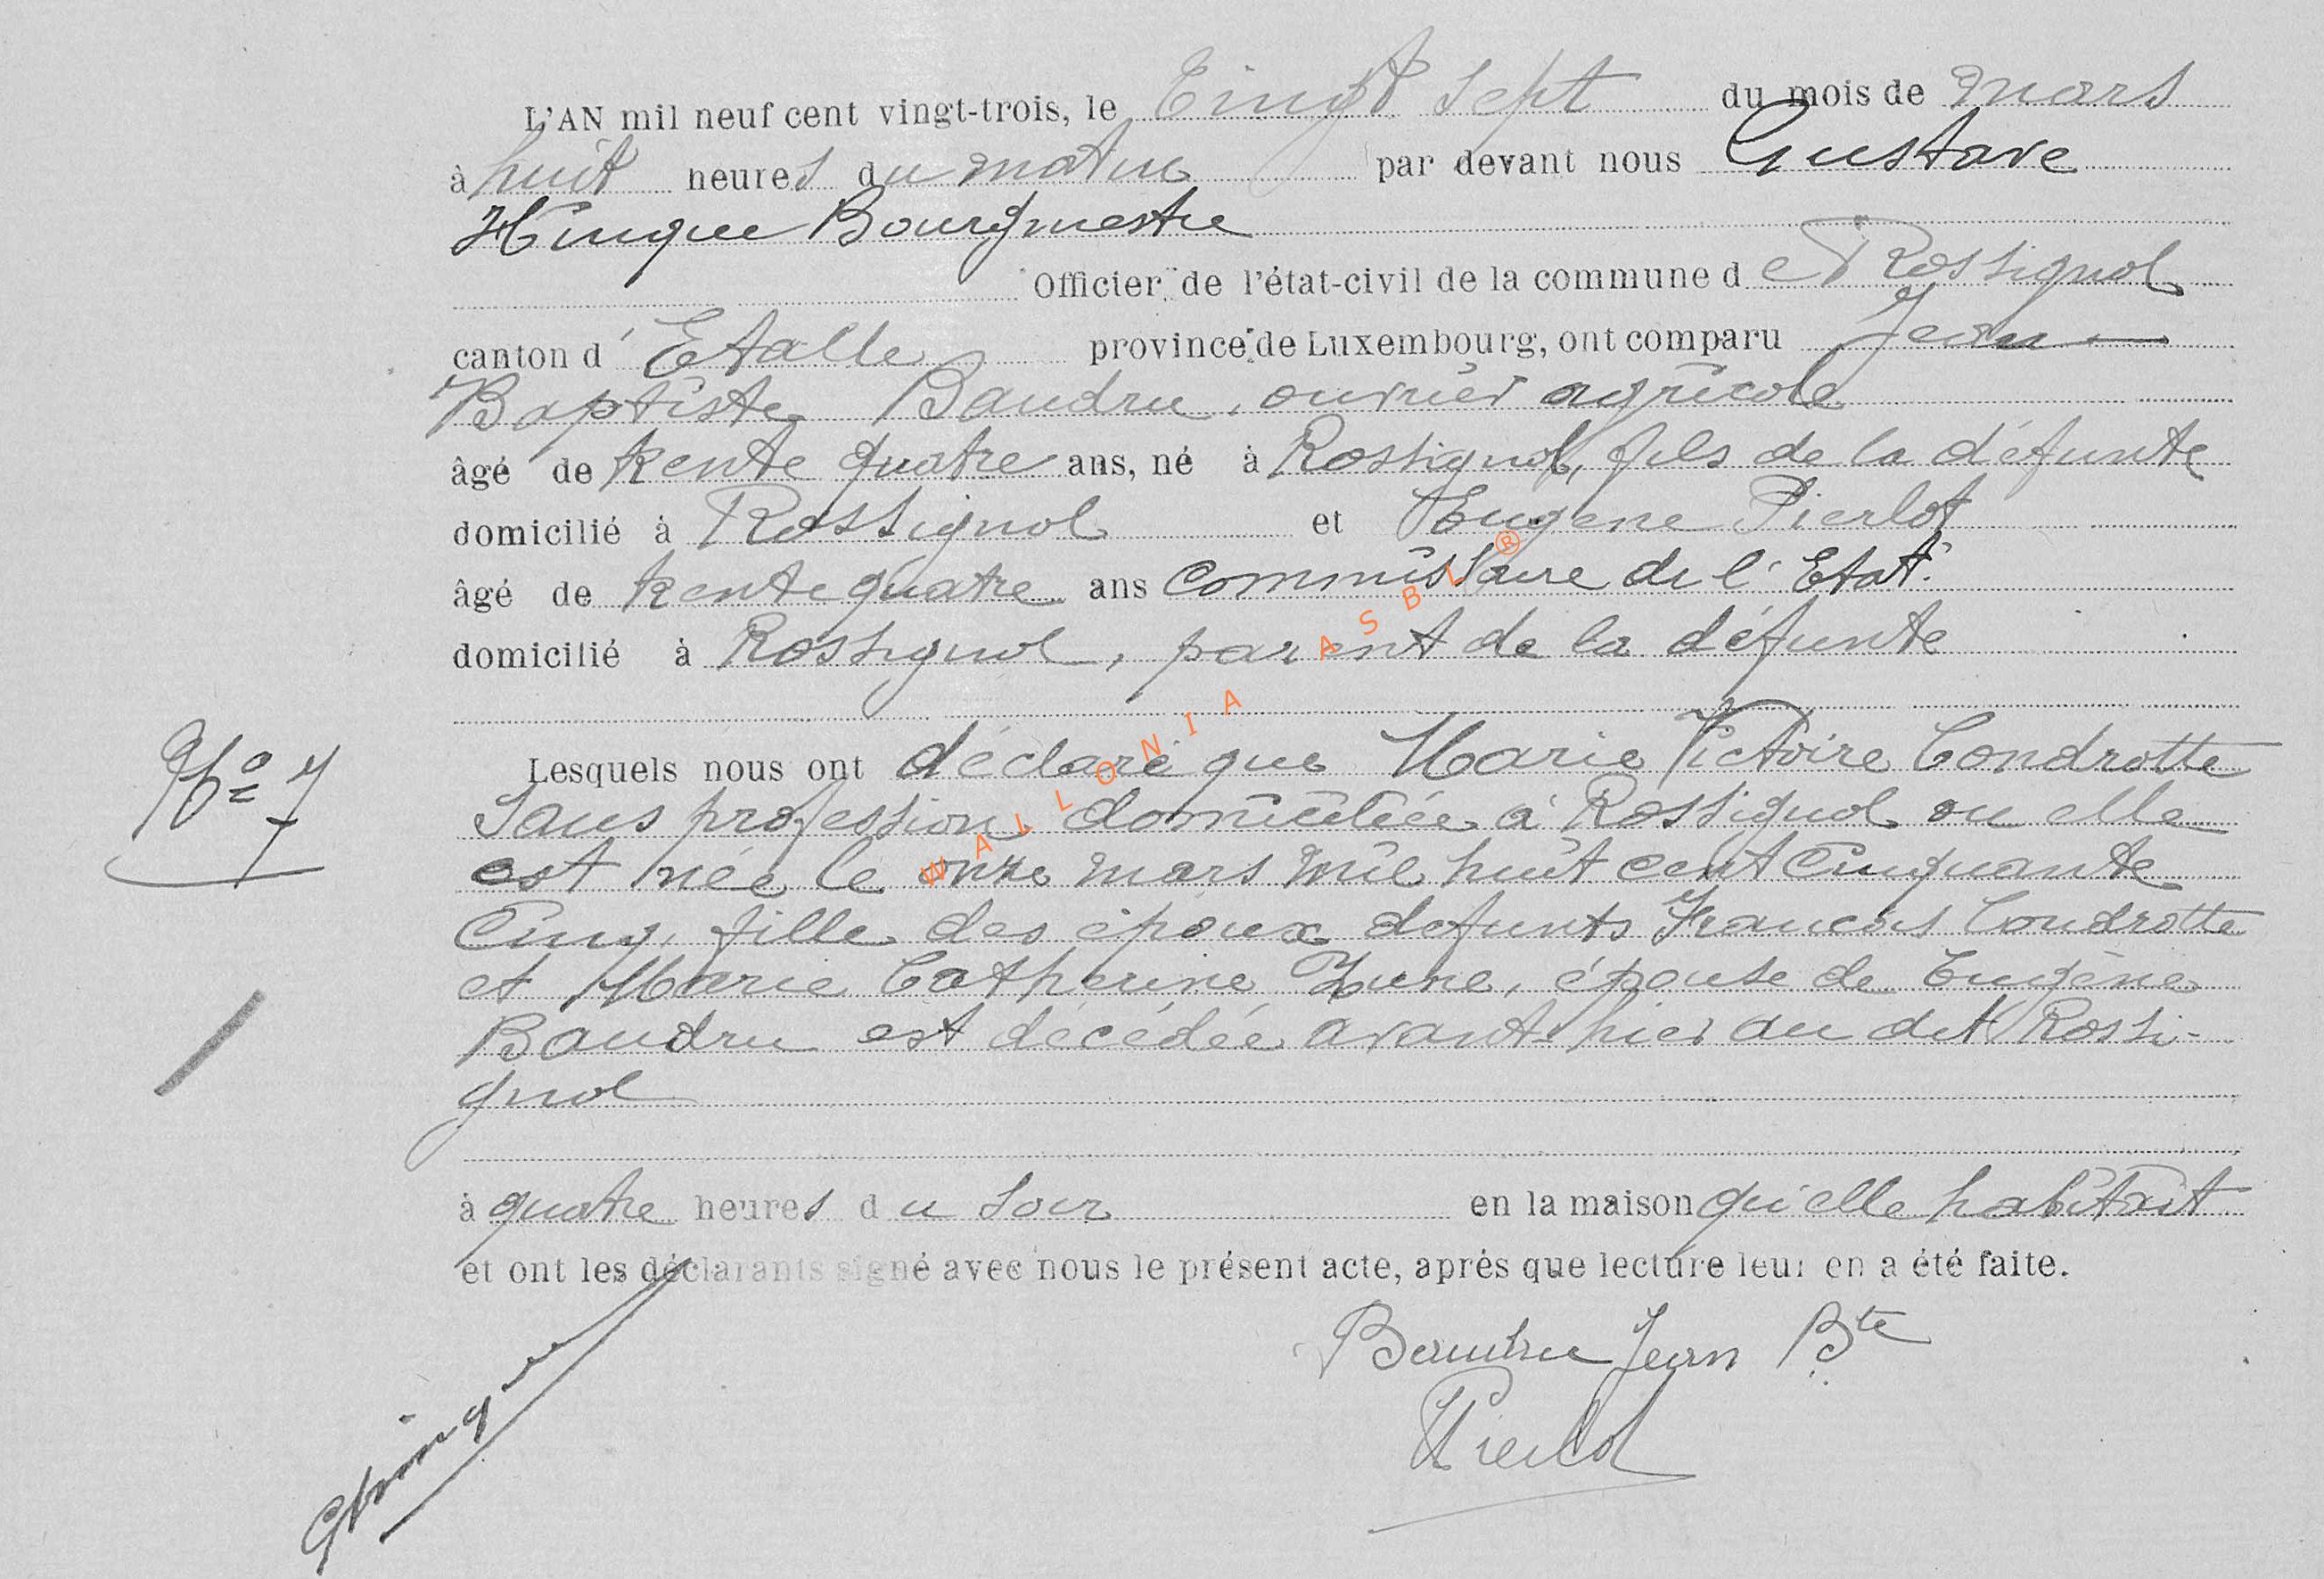 L'AN mil neuf cent vingt-trois, le Vingt sept du mois de mars
à huit heures du matin par devant nous Gustave
Hinque Bourgmestre
Officier de l'état-civil de la commune de Rossignol
canton d'Etalle province de Luxembourg, ont comparu Jean
Baptiste Baudru, ouvrier agricole
âgé de trente quatre ans, né à Rossignol, fils de la défunte
domicilié à Rossignol et Eugene Pierlot
âgé de trente quatre ans commissaire de l'Etat
domicilié à Rossignol, parent de la défunte
No 7
Lesquels nous ont déclaré que Marie Victoire Condrotte
Sans profession domiciliée à Rossignol ou elle
est née le onze mars mil huit cent Cinquante
Cinq, fille des époux défunts Francois Condrotte
et Marie Catherine Zune, épouse de Eugène
Baudru est décédée avant-hier au dit Rossi-
gnol
à quatre heures du soir en la maison qu'elle habitait
et ont les déclarants signé avec nous le présent acte, après que lecture leur en a été faite.
Baudru Jean Bte
Pierlot
GHinque
WALLONIA ASBL ®